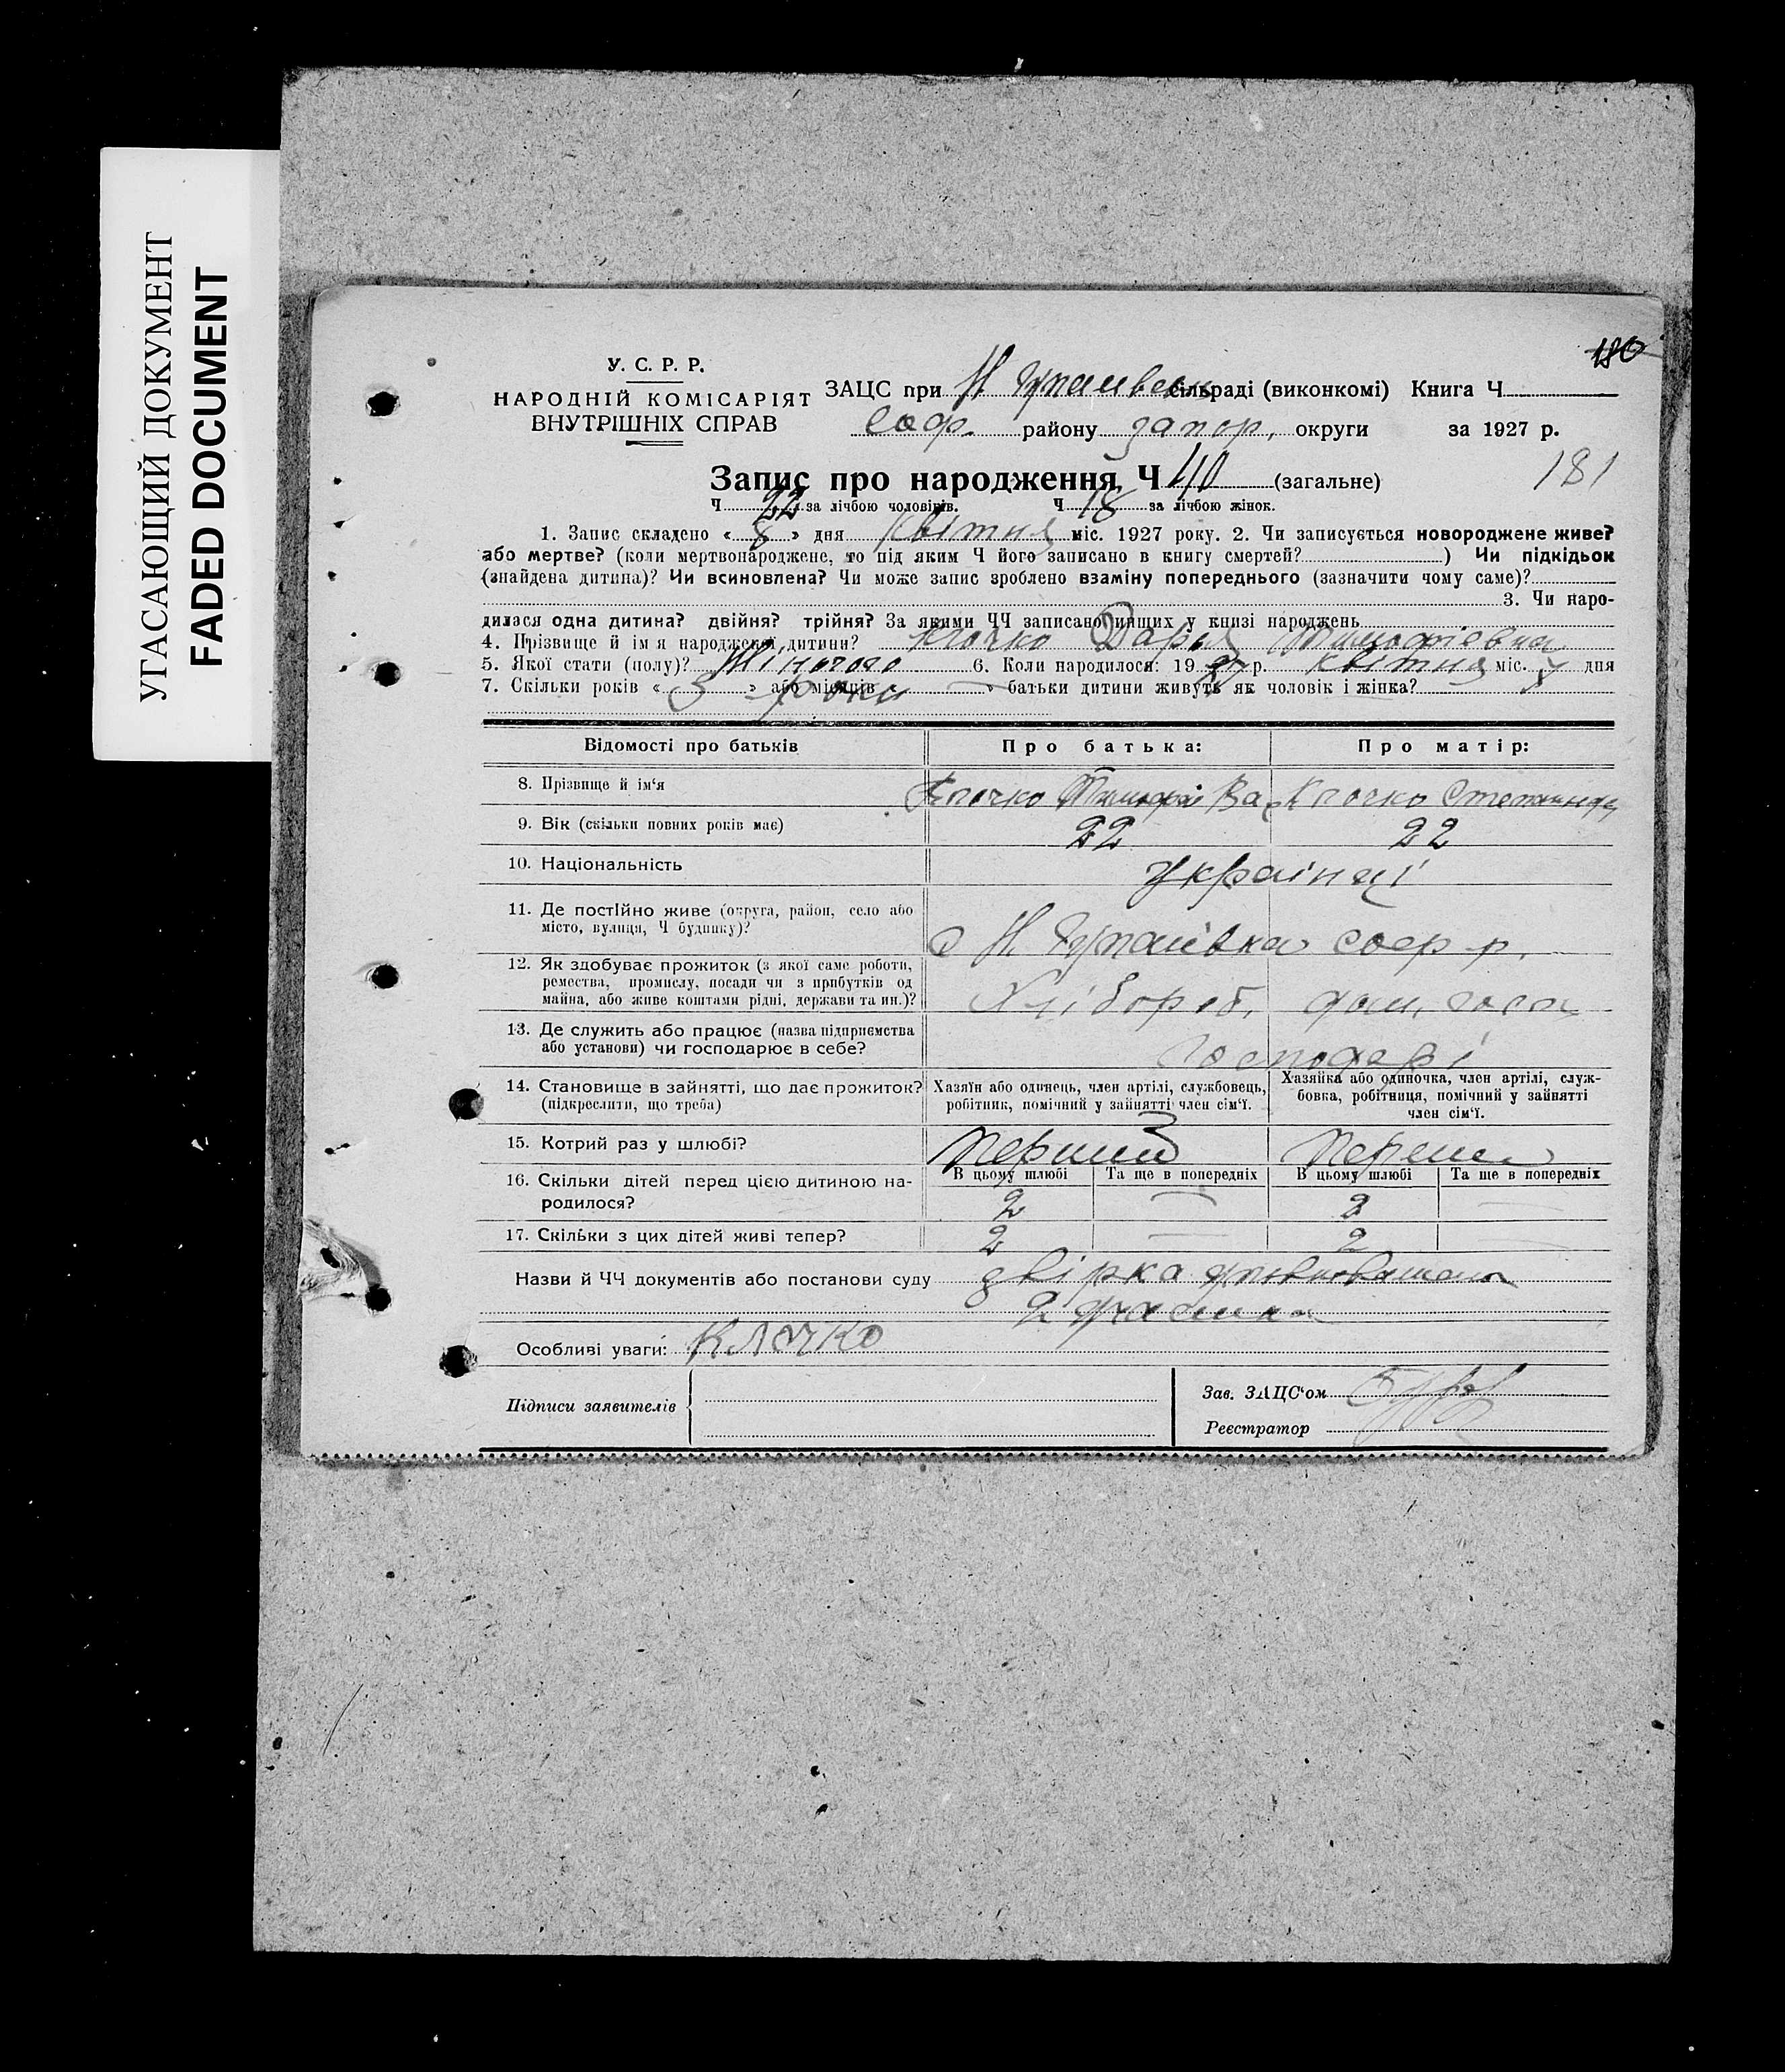 УГАСАЮЩИЙ ДОКУМЕНТ
FADED DOCUMENT
180
У. С. Р. Р.
НАРОДНІЙ КОМІСАРІЯТ
ВНУТРІШНІХ СПРАВ
ЗАЦС при Н сільраді (виконкомі) Книга Ч
Соф. району Запор. округи за 1927 р.
Запис про народження Ч 40 (загальне) 181
Ч 22 за лічбою чоловіків. Ч 18 за лічбою жінок.
1. Запис складено « 8 » дня Квітня міс. 1927 року. 2. Чи записується новороджене живе?
або мертве? (коли мертвонароджене, то під яким Ч його записано в книгу смертей? ) Чи підкідьок
(знайдена дитина)? Чи всиновлена? Чи може запис зроблено взаміну попереднього (зазначити чому саме)?
3. Чи наро-
дилася одна дитина? двійня? трійня? За якими ЧЧ записано инших у книзі народжень
4. Прізвище й ім'я народженої дитини? Клочко Дарья Тимофіевна
5. Якої стати (полу)? Жіночого 6. Коли народилося: 19 27 р. Квітня міс. дня
7. Скільки років « 3 роки » або місяців — » батьки дитини живуть як чоловік і жінка?
Відомості про батьків Про батька: Про матір:
8. Прізвище й ім'я Клочко Тимофій Вас Клочко Степанида
9. Вік (скільки повних років має) 22 22
10. Національність Українці
11. Де постійно живе (округа, район, село або
місто, вулиця, Ч будинку)? с Н р.
12. Як здобуває прожиток (з якої саме роботи,
ремества, промислу, посади чи з прибутків од
майна, або живе коштами рідні, держави та ин.)? Хлібороб. дом. госп
13. Де служить або працює (назва підприємства
або установи) чи господарює в себе? Господарі
14. Становище в зайнятті, що дає прожиток?
(підкреслити, що треба)
Хазяїн або одинець, член артілі, службовець,
робітник, помічний у зайнятті член сім'ї.
Хазяйка або одиночка, член артілі, служ-
бовка, робітниця, помічний у зайнятті
член сім'ї.
15. Котрий раз у шлюбі? Перший Перший
В цьому шлюбі Та ще в попередніх В цьому шлюбі Та ще в попередніх
16. Скільки дітей перед цією дитиною на-
родилося? 2 — 2 —
17. Скільки з цих дітей живі тепер? 2 — 2 —
Назви й ЧЧ документів або постанови суду
Особливі уваги: Клочко
Підписи заявителів
Зав. ЗАЦС'ом
Реєстратор